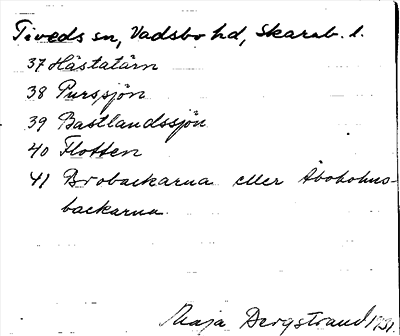 Tiveds sn, Vadsbo hd, Skarab. l.
37 Hästatärn
38 Purssjön
39 Bastlandssjön
40 Flotten
41 Brobackarna eller Åbobohus-
backarna
Maja Bergstrand 1931.